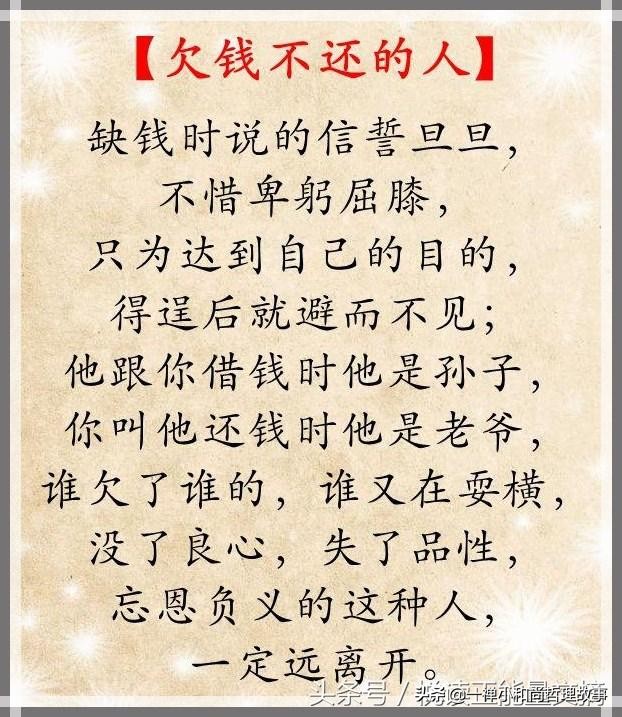 【欠钱不还的人】
缺钱时说的信誓旦旦，
不惜卑躬屈膝，
只为达到自己的目的，
得逞后就避而不见；
他跟你借钱时他是孙子，
你叫他还钱时他是老爷，
谁欠了谁的，谁又在耍横，
没了良心，失了品性，
忘恩负义的这种人，
一定远离开。
头条@一禅小和尚哲理故事
头条号